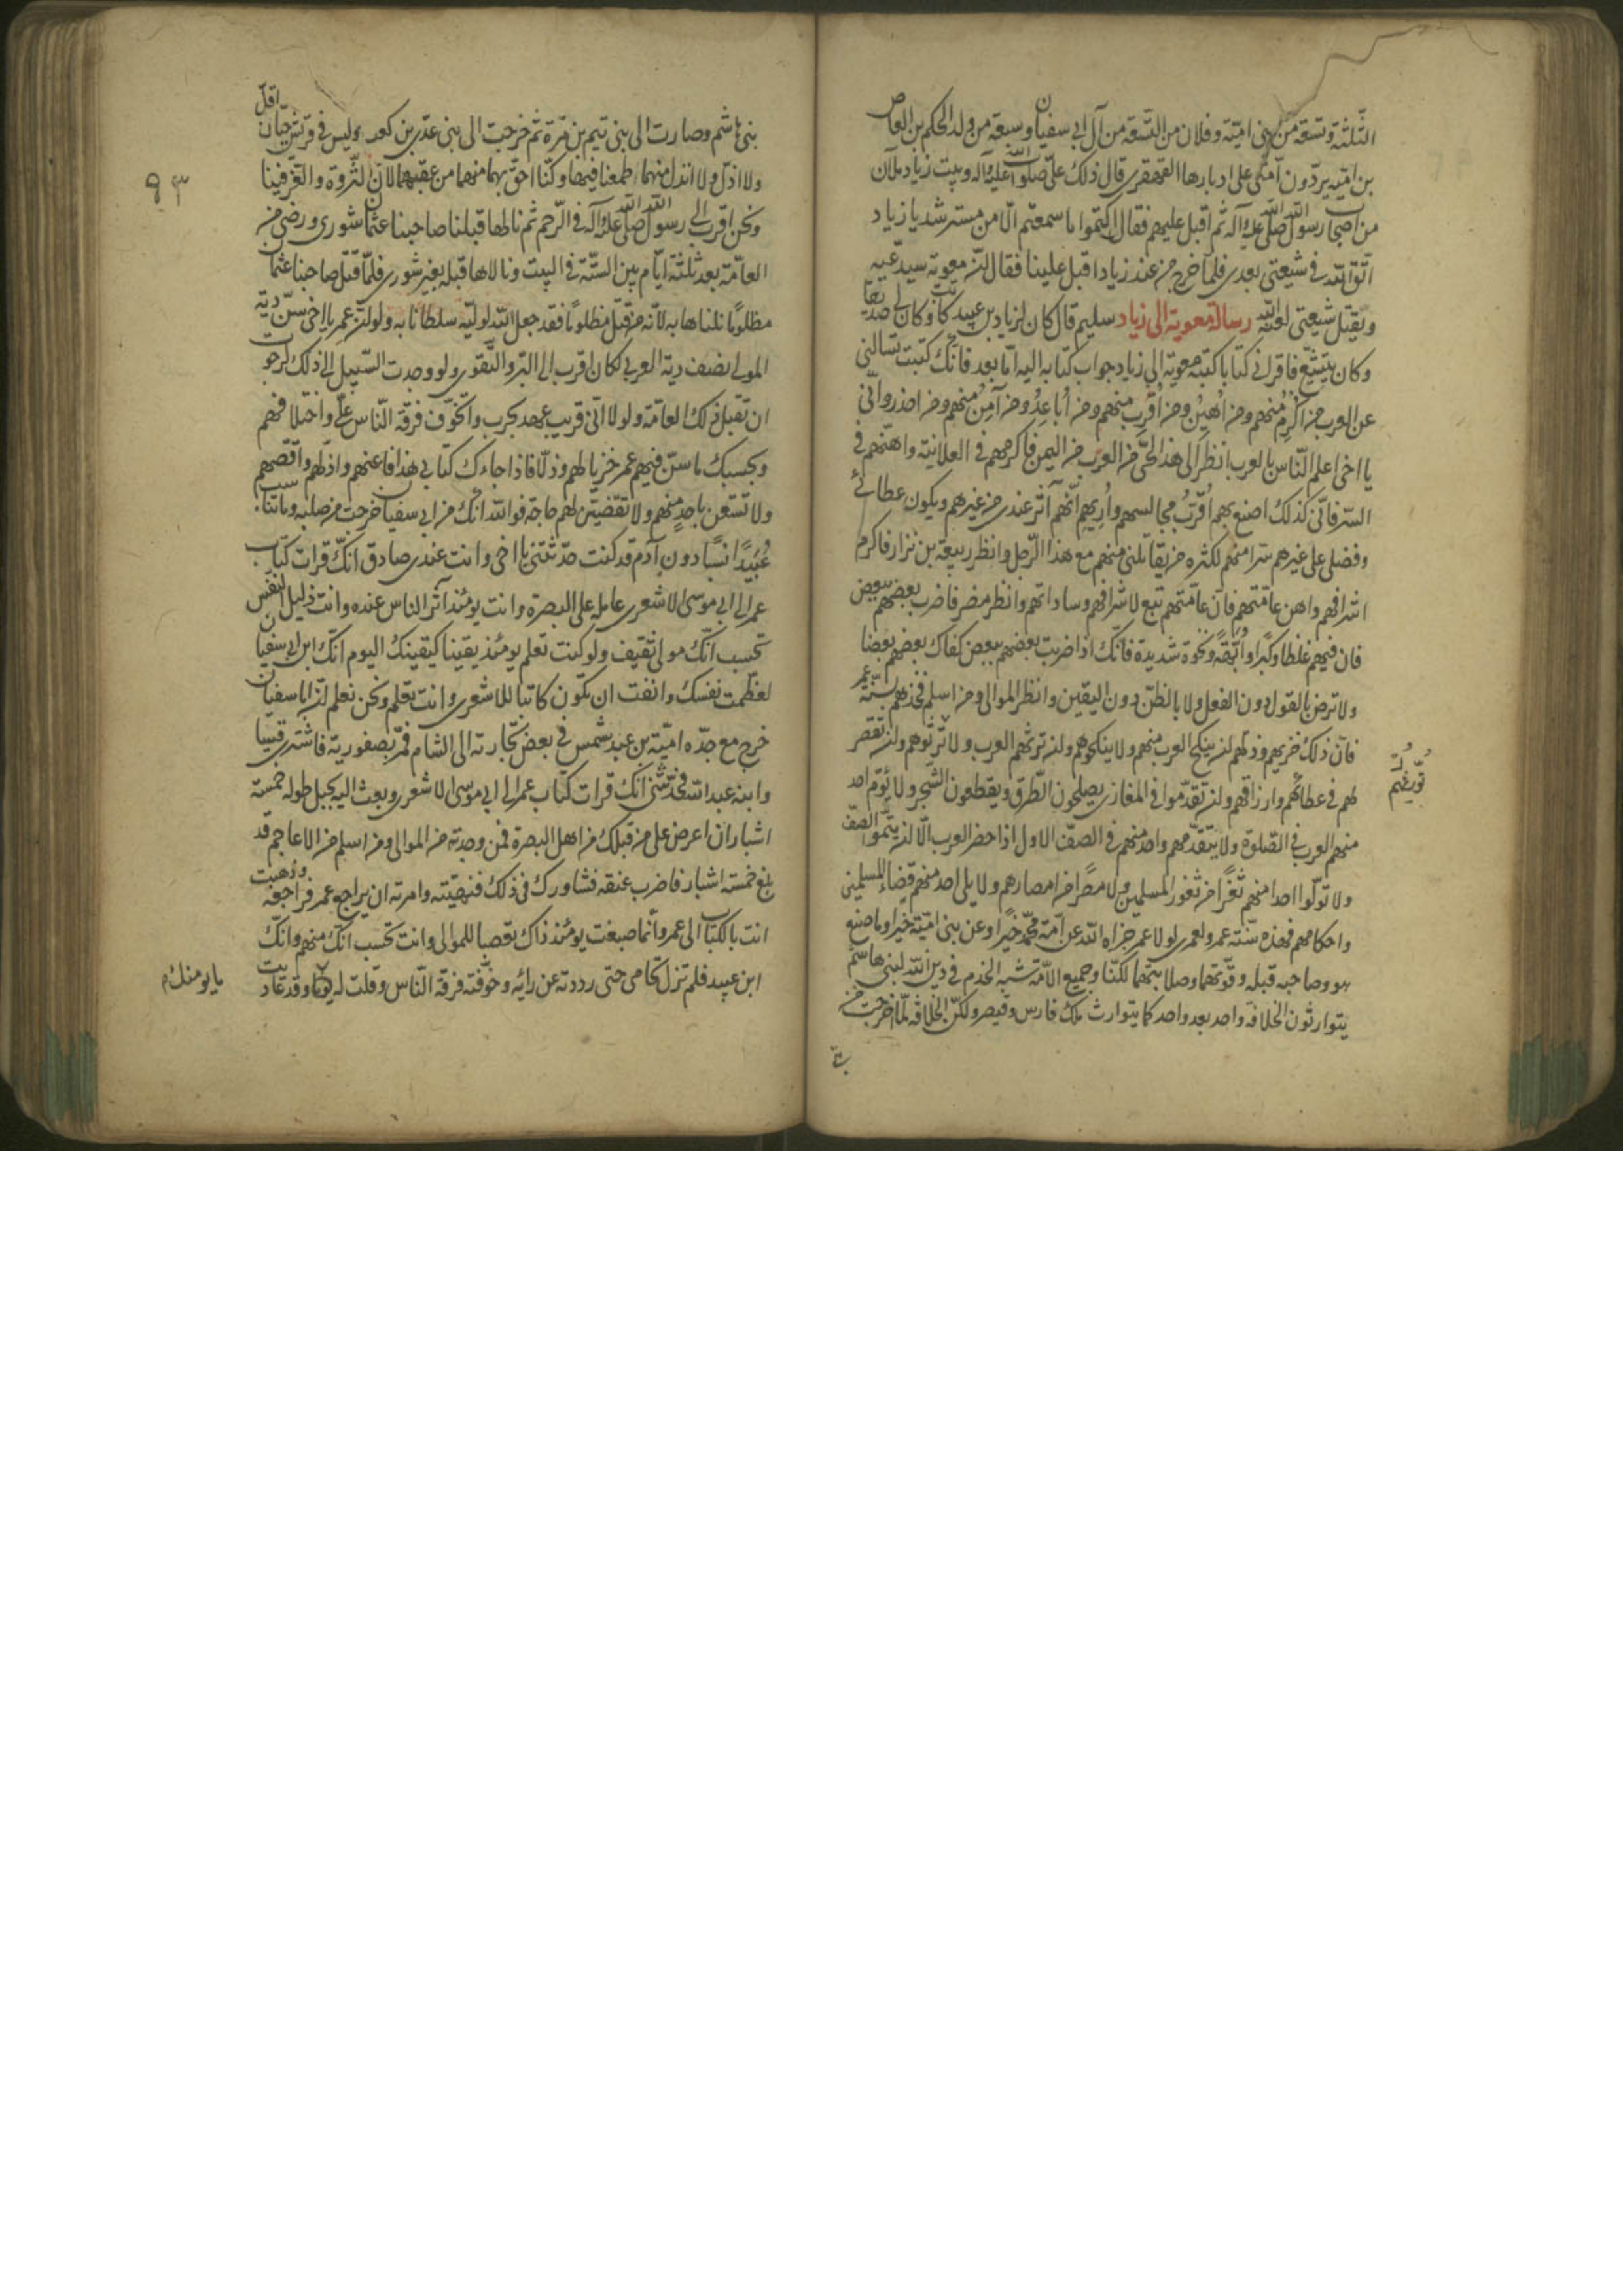 الثلثة وتسعة من بنى امية وفلان من التسعة من آل ابى سفيان وسبعة من ولد الحكم بن العاص
بن امية يردون امتى على ادبارها القهقرى قال ذلك على صلوات الله عليه وآله وبيت زياد ملآن
من اصحاب رسول الله صلى الله عليه وآله ثم اقبل عليهم فقال اكتموا ما سمعتم الا من مسترشد يا زياد
اتق الله فى شيعتى بعدى فلما خرج من عند زياد اقبل علينا فقال ان معوية سيدعيه
ويقتل شيعتى لعنه الله رسالة معوية الى زياد سليم قال كان لزياد بن عبيد كاتب وكان لى صديقا
وكان يتشيع فاقرانى كتابا كتبه معوية الى زياد جواب كتابه اليه اما بعد فانك كتبت تسالنى
عن العرب من اكرم منهم ومن اهين ومن اقرب منهم ومن اباعد ومن آمن منهم ومن احذر وانى
يا اخى اعلم الناس بالعرب انظر الى هذا الحى من العرب من اليمن فاكرمهم فى العلانية واهنهم فى
السر فانى كذلك اصنع بهم اقرب مجالسهم واريهم انهم آثر عندى من غيرهم ويكون عطائى
وفضلى على غيرهم سرا منهم لكثرة من يقاتلنى منهم مع هذا الرجل وانظر ربيعة بن نزار فاكرم
اشرافهم واهن عامتهم فان عامتهم تبع لاشرافهم وساداتهم وانظر مضر فاضرب بعضهم ببعض
فان فيهم غلظا وكبرا وابهة ونخوة شديدة فانك اذا ضربت بعضهم ببعض كفاك بعضهم بعضا
ولا ترض بالقول دون الفعل ولا بالظن دون اليقين وانظر الموالى ومن اسلم فخذهم بسنة عمر
فان ذلك خزيهم وذلهم ان ينكح العرب منهم ولا ينكحوهم وان ترثهم العرب ولا ترثوهم وان تقصر
لهم فى عطائهم وارزاقهم وان تقدموا فى المغازى يصلحون الطرق ويقطعون الشجر ولا يؤم احد
منهم العرب فى الصلوة ولا يتقدمهم واحد منهم فى الصف الاول اذا حضر العرب الا ان يتموا الصف
ولا تولوا احدا منهم ثغرا من ثغور المسلمين ولا مصرا من امصارهم ولا يلى احد منهم قضاء المسلمين
واحكامهم فهذه سنة عمر ولعمرى لولا عمر جزاه الله عن امة محمد خيرا وعن بنى امية خيرا وما صنع
هو وصاحبه قبله وقوتهما وصلابتهما لكنا وجميع الامة شبه الخدم فى دين الله لبنى هاشم
يتوارثون الخلافة واحد بعد واحد كما يتوارث ملك فارس وقيصر ولكن الخلافة لما اخرجت من
٩٣
بنى هاشم وصارت الى بنى تيم بن مرة ثم خرجت الى بنى عدى بن كعب وليس فى قريش حيان اقل
ولا اذل ولا انذل منهما اطمعنا فيها وكنا احق بها منهما من عقبهما لان الثروة والعز فينا
ونحن اقرب الى رسول الله صلى الله عليه وآله فى الرحم ثم نالها قبلنا صاحبنا عثمان شورى ورضى من
العامة بعد ثلثة ايام بين الستة فى البيت ونالاها قبله بغير شورى فلما قتل صاحبنا عثمان
مظلوما نلناها به لانه من قتل مظلوما فقد جعل الله لوليه سلطانا به ولو ان عمر يا اخى سن دية
المولى نصف دية العربى لكان اقرب الى البر والتقوى ولو وجدت السبيل الى ذلك لرجوت
ان تقبل ذلك العامة ولولا انى قريب عهد بحرب واتخوف فرقة الناس على واختلافهم
وبحسبك ما سن فيهم عمر خزيا لهم وذلا فاذا جاءك كتابى هذا فاعنهم واذلهم واقصهم
ولا تستعن باحد منهم ولا تقضين لهم حاجة فوالله انك من ابى سفيان خرجت من صلبه وما تناسب
عبيدا نسبا دون آدم قد كنت حدثتنى يا اخى وانت عندى صادق انك قرات كتاب
عمر الى ابى موسى الاشعرى عامله على البصرة وانت يومئذ آثر الناس عنده وانت ذليل النفس
تحسب انك مولى ثقيف ولو كنت تعلم يومئذ يقينا كيقينك اليوم انك ابن ابى سفيان
لعظمت نفسك وانفت ان تكون كاتبا للاشعرى وانت تعلم ونحن نعلم ان ابا سفيان
خرج مع جده امية بن عبد شمس فى بعض تجارته الى الشام فمر بصفورية فاشترى قينا
وابنه عبد الله فحدثتنى انك قرات كتاب عمر الى ابى موسى الاشعرى وبعث اليه بحبل طوله خمسة
اشبار ان اعرض على من قبلك من اهل البصرة فمن وجدته من الموالى ومن اسلم من الاعاجم قد
بلغ خمسة اشبار فاضرب عنقه فشاورك فى ذلك فنهيته وامرته ان يراجع عمر فراجعه وذهبت
انت بالكتاب الى عمر وانما صنعت يومئذ ذاك تعصبا للموالى وانت تحسب انك منهم وانك
ابن عبيد فلم تزل تحامى حتى رددته عن رايه وخوفته فرقة الناس وقلت له وقد عاديت